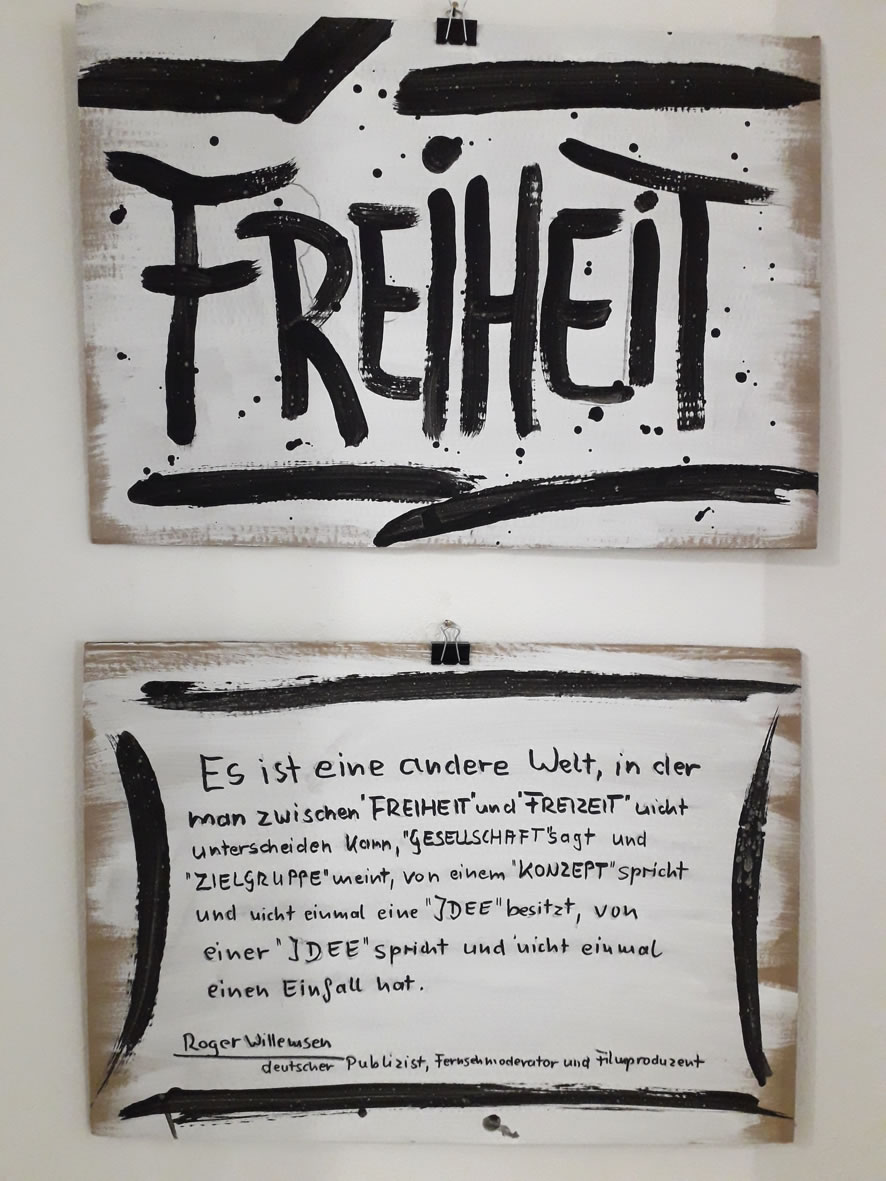 FREiHEiT
Es ist eine andere Welt, in der
man zwischen "FREIHEIT" und "FREIZEIT" nicht
unterscheiden kann, "GESELLSCHAFT" sagt und
"ZIELGRUPPE" meint, von einem "KONZEPT" spricht
und nicht einmal eine "IDEE" besitzt, von
einer "IDEE" spricht und nicht einmal
einen Einfall hat.
Roger Willemsen
deutscher Publizist, Fernsehmoderator und Filmproduzent